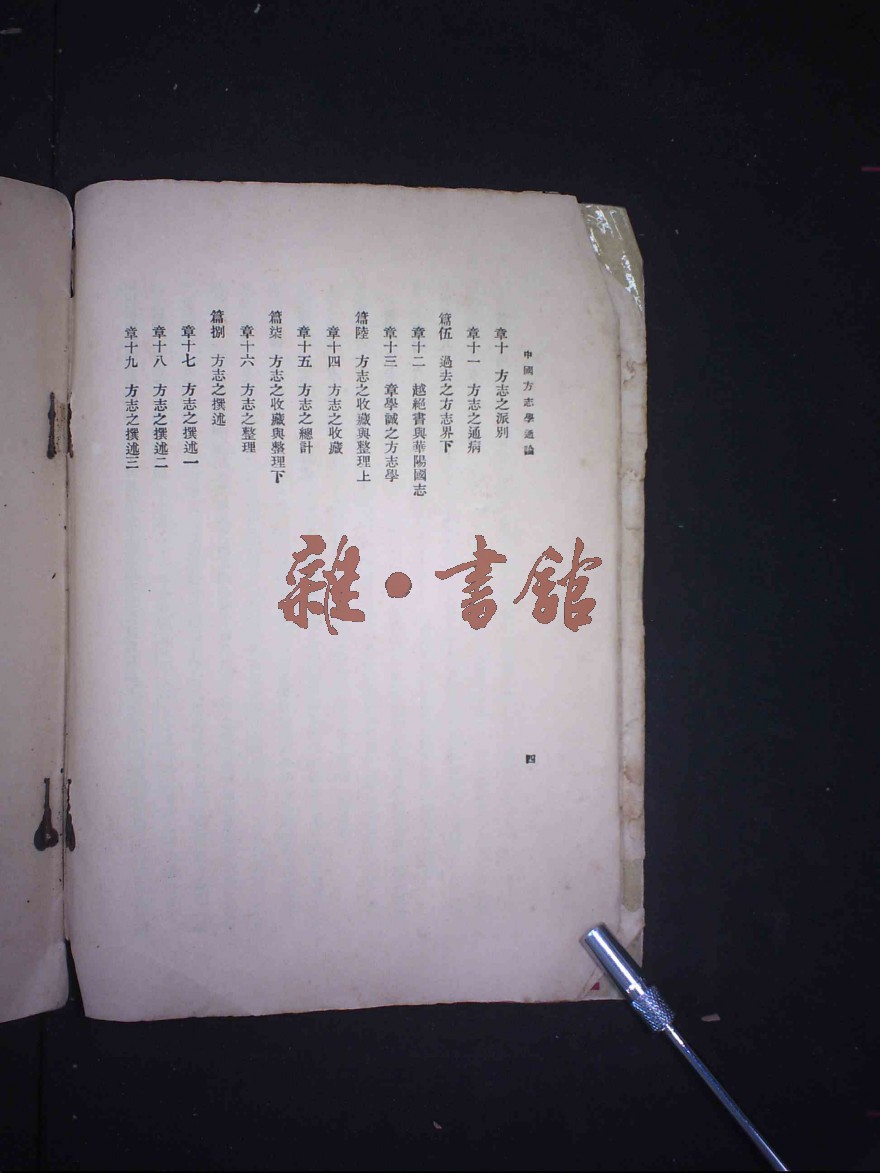 中國方志學通論
章十　方志之派別
章十一　方志之通病
篇伍　過去之方志界下
章十二　越絕書與華陽國志
章十三　章學誠之方志學
篇陸　方志之收藏與整理上
章十四　方志之收藏
章十五　方志之總計
篇柒　方志之收藏與整理下
章十六　方志之整理
篇捌　方志之撰述
章十七　方志之撰述一
章十八　方志之撰述二
章十九　方志之撰述三
四
雜・書館